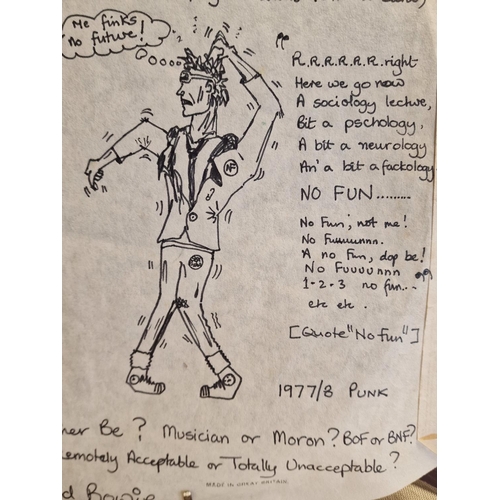 Me finks
no future!
"
R.R.R.R.R.R.right
Here we go now
A sociology lecture,
Bit a pschology,
A bit a neurology
An' a bit a fackology
NO FUN.........
No Fun, not me!
No Fuuuunnn.
A no Fun, dop be!
No Fuuuunnn "
1-2-3 no fun...
etc etc.
[Quote "No Fun"]
1977/8 PUNK
Be? Musician or Moron? BOF or BNF?
emotely Acceptable or Totally Unacceptable?
MADE IN GREAT BRITAIN
d Bowie